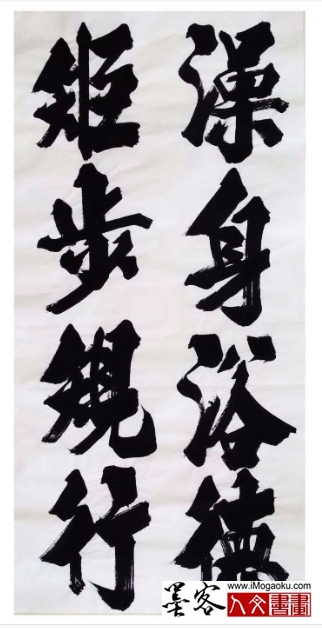 澡身浴德
矩步規行
www.iMogaoku.com
墨客
人文書畫